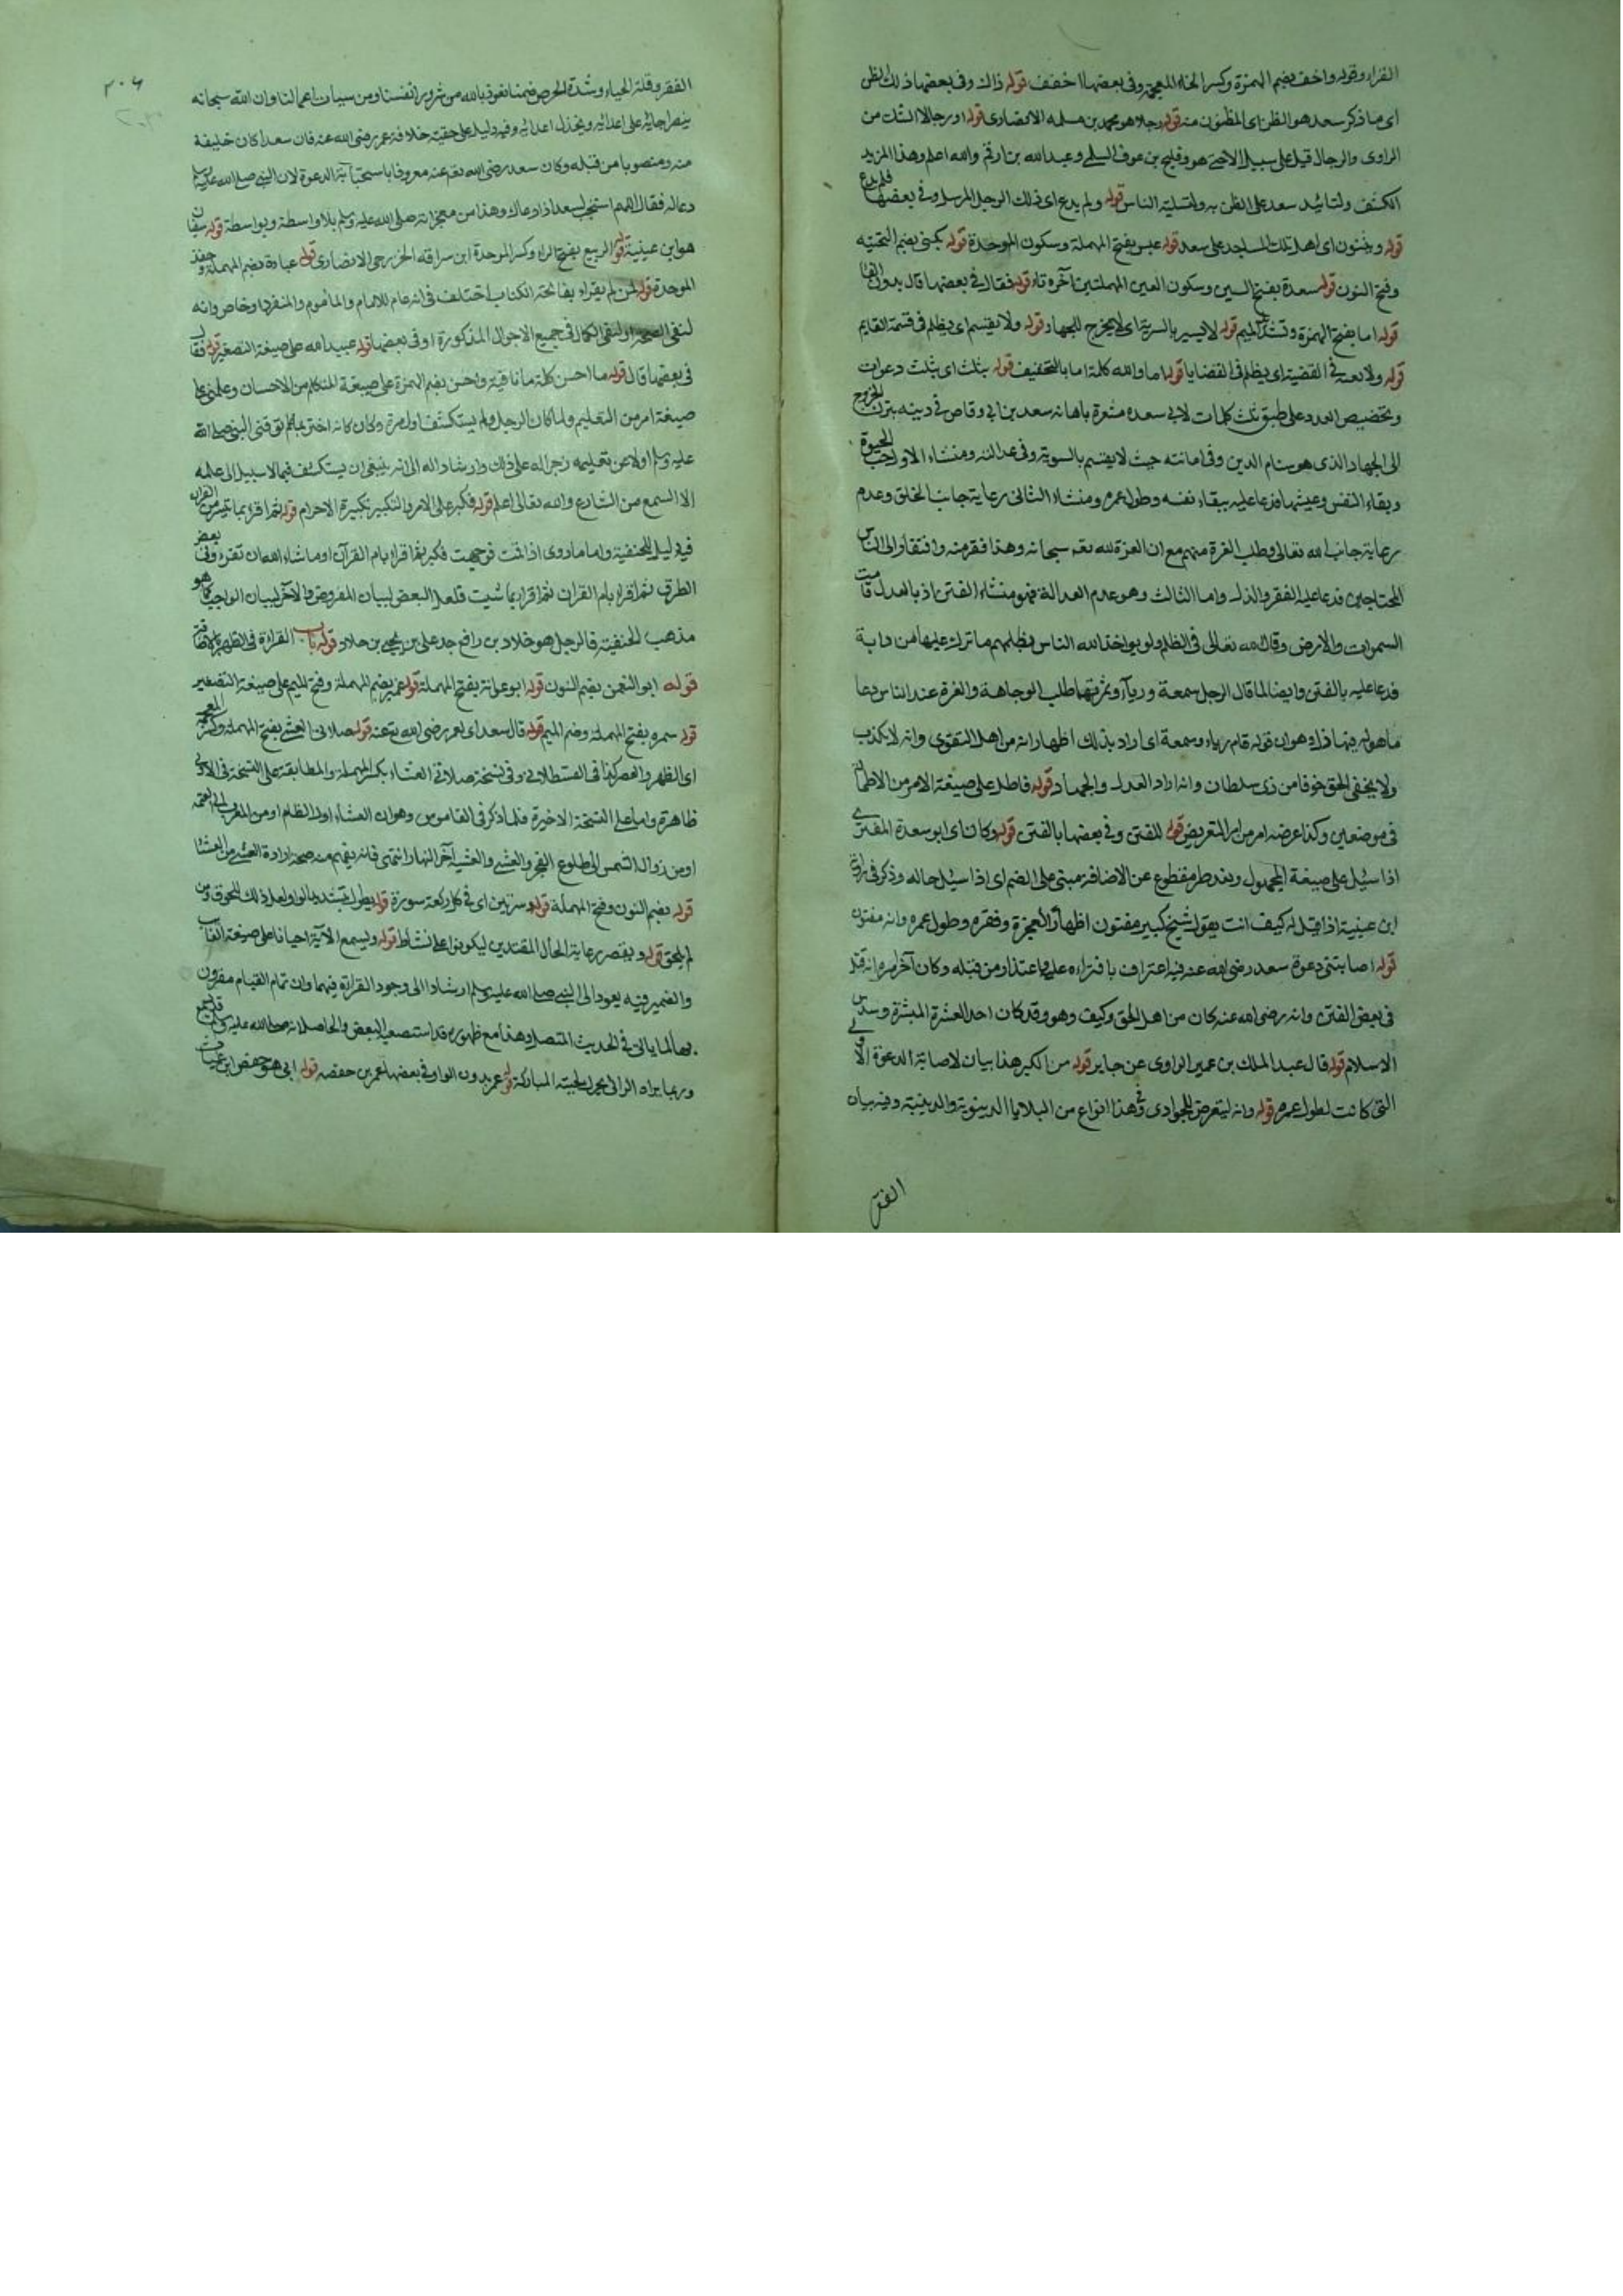 القراء وقوله واخف بضم الهمزة وكسر الخاء المعجمة وفى بعضها اخفف قوله ذاك وفى بعضها ذلك الظن
اى ما ذكر سعد هو الظن اى المظنون منه قوله رجلا هو محمد بن مسلمه الانصارى قوله او رجالا الشك من
الراوى والرجال قيل على سبيل هو وفليح بن عوف السلمى وعبد الله بن ارقم والله اعلم وهذا المزيد
الكشف ولتائيد سعد على الظن به ولتسلية الناس قوله ولم يدع اى ذلك الرجل المرسل وفى بعضها فلم يدع
قوله ويثنون اى اهل تلك المساجد على سعد قوله عبس بفتح المهملة وسكون الموحدة قوله يكنى بضم التحتيه
وفتح النون قوله سعدة بفتح السين وسكون العين المهملتين آخره تاء قوله فقال فى بعضها قال بدون الفا
قوله اما بفتح الهمزة وتشديد الميم قوله لا يسير بالسرية اى لا يخرج للجهاد قوله ولا يقسم اى يظلم فى قسمة الغنايم
قوله ولا يعدل فى القضية اى يظلم فى القضايا قوله اما والله كلمة اما بالتخفيف قوله بثلث اى بثلث دعوات
وتخصيص العدد على طبق ثلث كلمات لابى سعده مشعرة باهانة سعد بن ابى وقاص فى دينه بترك الخروج
الى الجهاد الذى هو سنام الدين وفى امانته حيث لا يقسم بالسوية وفى عدالته ومنشاء الاول حب الحيوة
وبقاء النفس وعيشها فدعا عليه ببقاء نفسه وطول عمره ومنشاء الثانى رعاية جانب الخلق وعدم
رعاية جانب الله تعالى وطلب العزة منهم مع ان العزة لله تعـ سبحانه وهذا فقر منه وافتقار الى الناس
المحتاجين فدعا عليه الفقر والذل واما الثالث وهو عدم العدالة فهو منشاء الفتن اذ بالعدل قامت
السموات والارض وقال الله تعالى فى الظلم ولو يواخذ الله الناس بظلمهم ما ترك عليها من دابة
فدعا عليه بالفتن وايضا لما قال الرجل سمعة ورياء وثمرتها طلب الوجاهة والعزة عند الناس دعا
ما هو قوله قام رياء وسمعة اى اراد بذلك اظهار انه من اهل التقوى وانه لا يكذب
ولا يخفى الحق خوفا من ذى سلطان وانه اراد العدل والجهاد قوله فاطل على صيغة الامر من الاطالة
فى موضعين وكذا عرضه امر من التعريض قوله للفتن وفى بعضها بالفتن قوله وكان اى ابو سعدة المفترى
اذا سيل على صيغة المجهول وبعد ظرف مقطوع عن الاضافة مبنى على الضم اى اذا سيل حاله وذكر فى رواية
ابن عيينة اذا قيل له كيف انت يقول شيخ كبير مفتون اظهارا لعجزه وفقره وطول عمره وانه مفتون
قوله اصابتنى دعوة سعد رضى الله عنه فيه اعتراف بافتراءه عليه واعتذار من قبله وكان آخر امره انه قتل
فى بعض الفتن وانه رضى الله عنه كان من اهل الحق وكيف وهو وقد كان احد العشرة المبشرة وسدس
الاسلام قوله قال عبد الملك بن عمير الراوى عن جابر قوله من الكبر هذا بيان لاصابة الدعوة الاولى
التى كانت لطول عمره قوله وانه ليتعرض للجوارى فى وهذا انواع من البلايا الدينوية والدينية وفيه بيان
الفقر
٢٠٤
الفقر وقلة الحياء وشدة الحرص فيها نعوذ بالله من شرور انفسنا ومن سيات اعمالنا وان الله سبحانه
ينصر على اعدائه ويخذل اعدائه وفيه دليل على حقية خلافة عمر رضى الله عنه فان سعدا كان خليفة
منه ومنصوبا من قبله وكان سعد رضى الله تعـ عنه معروفا باستجابة الدعوة لان النبى صلى الله عليه وسلم
دعا له فقال اللهم استجب لسعد اذا دعاك وهذا من معجزاته صلى الله عليه وسلم بلا واسطة وبواسطة قوله سفيان
هو ابن عيينة قوله الربيع بفتح الراء وكسر الموحدة ابن سراقه الخزرجى الانصارى قوله عبادة بضم المهملة وخفة
الموحدة قوله لمن لم يقراء بفاتحة الكتاب اختلف فى انه عام للامام والماموم والمنفرد او خاص وانه
لنفى الصحة او لنفى الكمال فى جميع الاحوال المذكورة او فى بعضها قوله عبيد الله على صيغة التصغير قوله فقال
فى بعضها قال قوله ما احسن كلمة ما نافية واحسن بضم الهمزة على صيغة المتكلم من الاحسان وعلمنى على
صيغة امر من التعليم ولما كان الرجل ولم يستكشف اول مرة وكان كانه اغتر بما علم توقف النبى صلى الله
عليه وسلم اولا عن تعليمه زجرا له على ذلك وارشاد اله الى انه ينبغى ان يستكشف فيما لا سبيل الى علمه
الا السمع من الشارع والله تعالى اعلم قوله فكبر على الامر والتكبير تكبيرة الاحرام قوله ثم اقراء بما تيسر من القران
فيه دليل للحنفية واما ما روى اذا قمت فتوجهت فكبر ثم اقراء بام القرآن او ما شاء الله ان تقرء وفى بعض
الطرق ثم اقراء بام القران ثم اقراء بما شيت فلعل البعض لبيان المفروض والآخر لبيان الواجب كما هو
مذهب الحنفية فالرجل هو خلاد بن رافع جد على بن يحيى بن خلاد قوله باب القراءة فى الظهر
قوله ابو النعمن بضم النون قوله ابو عوانة بفتح المهملة قوله عمير بضم المهملة وفتح الميم على صيغة التصغير
قوله سمره بفتح المهملة وضم الميم قوله قال سعد اى لعمر رضى الله تعـ عنه قوله صلاتى العشى بفتح المهملة وكسر المعجمة
اى الظهر والعصر كذا فى القسطلانى وفى نسخة صلاتى العشاء بكسر المهملة والمطابقة على النسخة الاولى
ظاهرة واما على النسخة الاخيرة فلما ذكر فى القاموس وهو ان العشاء اول الظلام او من المغرب الى العتمة
او من زوال الشمس الى طلوع الفجر والعشى والعشية آخر النهار انتهى فانه يفهم منه صحة ارادة العشى من العشاء
قوله بضم النون وفتح المهملة قوله وسورتين اى فى كل ركعة سورة قوله يطول بتشديد الواو ولعل ذلك للحوق من
لم يلحق قوله ويقصر رعاية الحال المقتدين ليكونوا على نشاط قوله ويسمع الآية احيانا على صيغة الغائب
والضمير فيه يعود الى النبى صلى الله عليه وسلم ارشادا الى وجود القراءة فيهما وان تمام القيام مقرون
بها لما ياتى فى الحديث المتصل وهذا مع ظهوره قد استصعبه البعض والحاصل انه صلى الله عليه وسلم
وربما يراه الرائى تحرك لحيته المباركة قوله عمر بدون الواو فى بعضها عمر بن حفص قوله ابى هو حفص ابن غياث